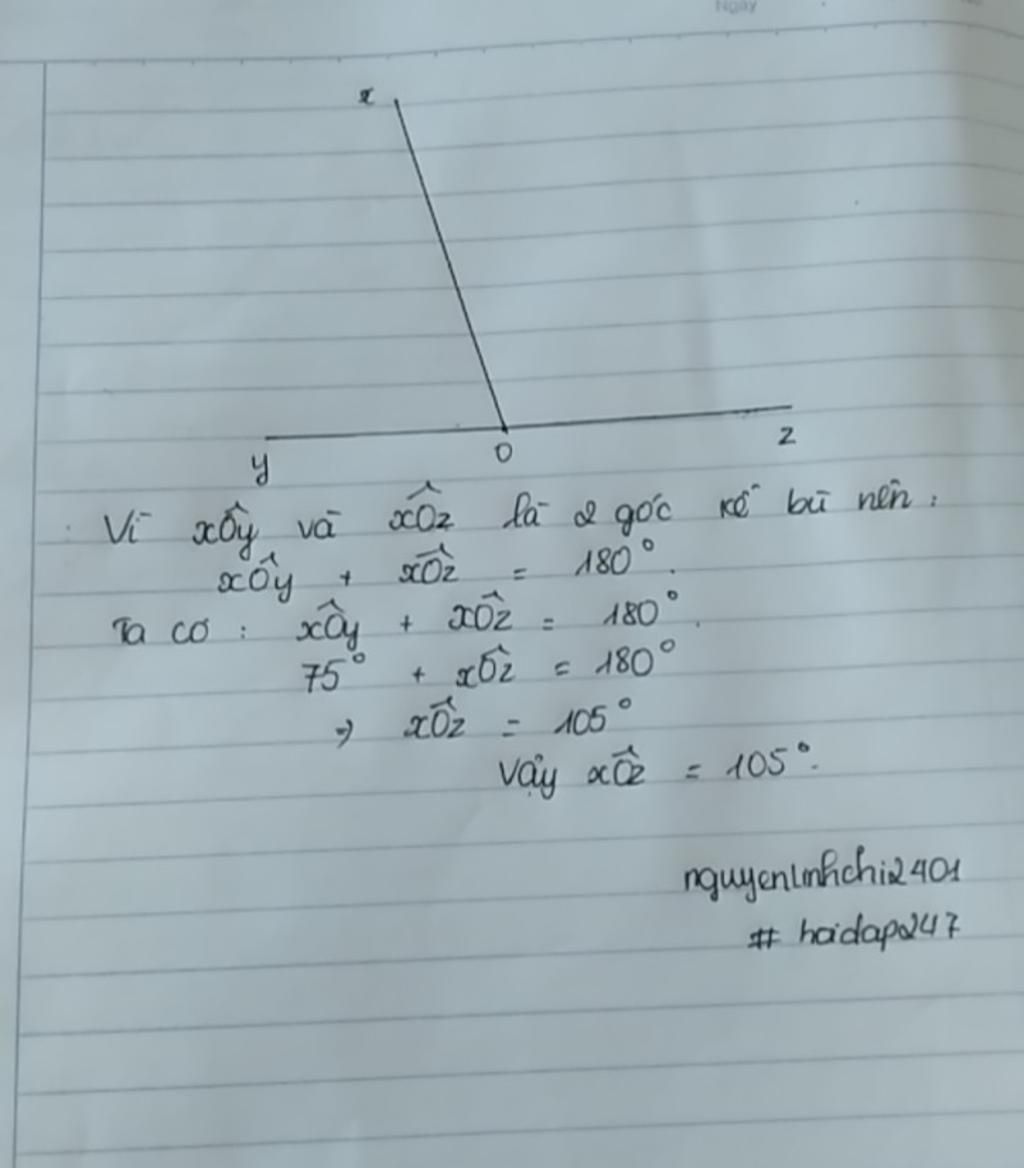 Ngày
x
y
O
z
Vì xÔy và xÔz là 2 góc kề bù nên :
xÔy + xÔz = 180°.
Ta có : xÔy + xÔz = 180°.
75° + xÔz = 180°
=> xÔz = 105°
Vậy xÔz = 105°.
nguyenlinhchi2401
# hoidap247